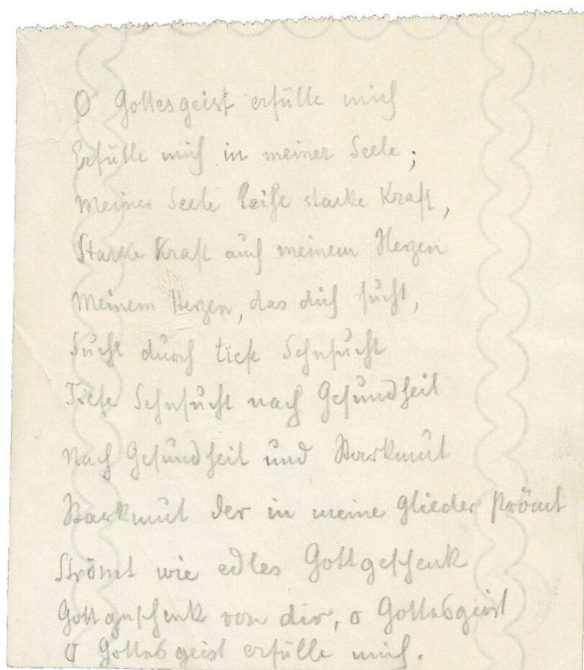 O Gottesgeist erfülle mich
Erfülle mich in meiner Seele;
Meiner Seele leihe starke Kraft,
Starke Kraft auch meinem Herzen
Meinem Herzen, das dich sucht,
Sucht durch tiefe Sehnsucht
Tiefe Sehnsucht nach Gesundheit
Nach Gesundheit und Starkmut
Starkmut der in meine Glieder strömt
Strömt wie edles Gottgeschenk
Gottgeschenk von dir, o Gottesgeist
O Gottesgeist erfülle mich.